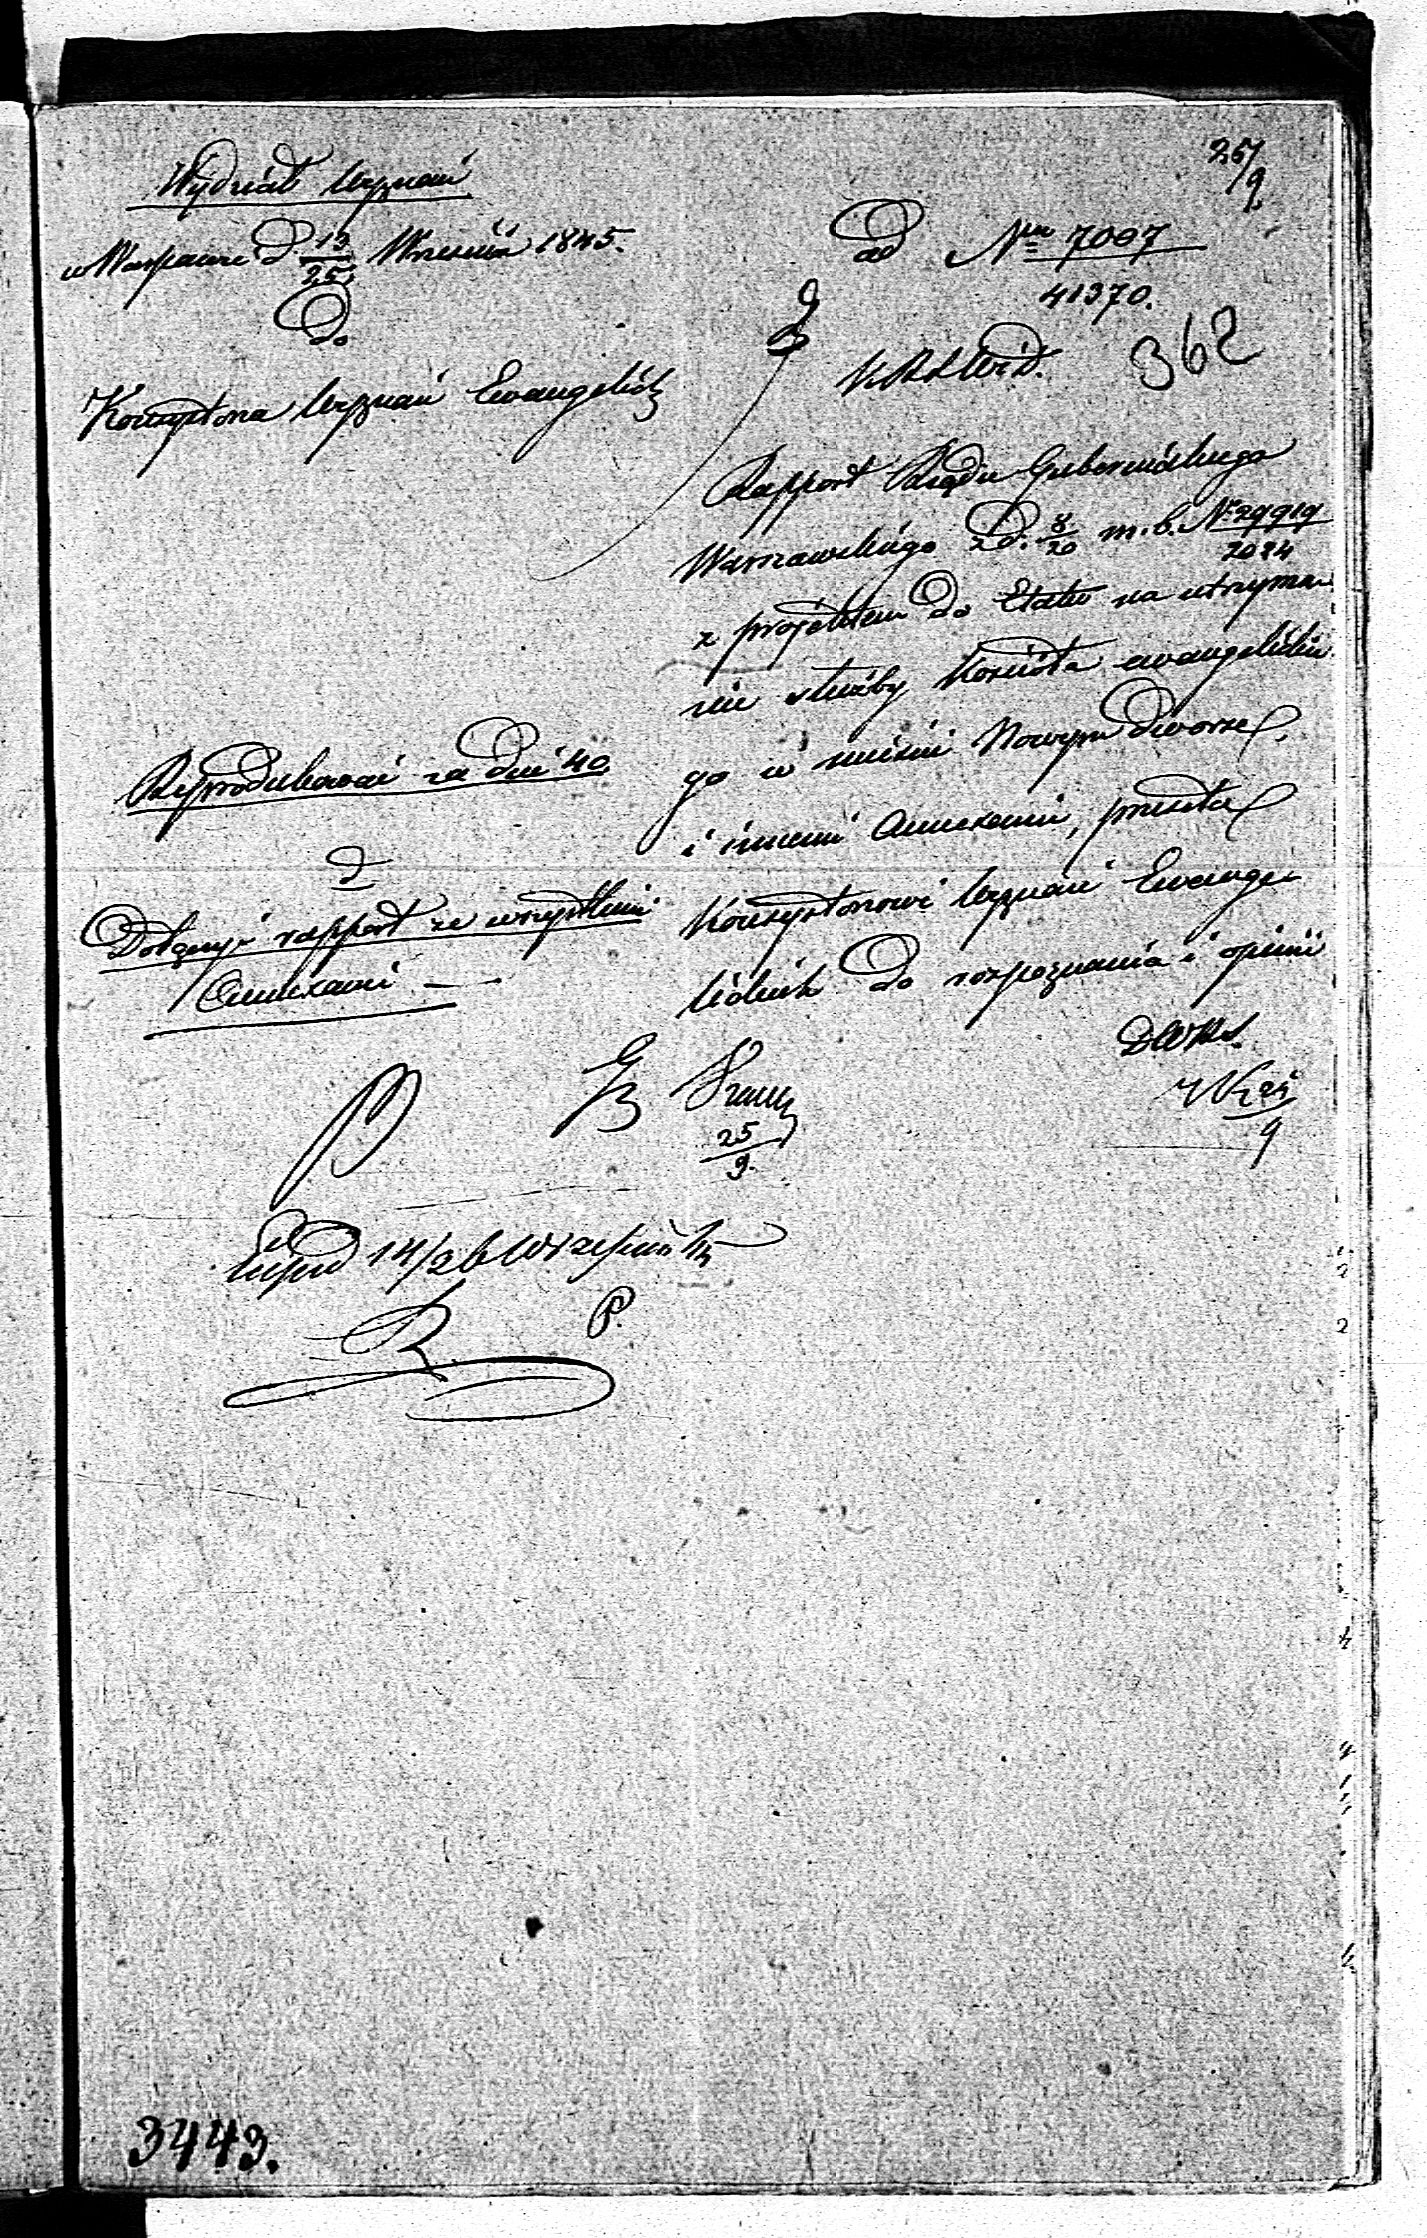 25/9
Wydział Wyznań
w Warszawie d 13/25 Września 1845.
Do
Konsystorza Wyznań Ewangelick
ad Nrm 7007/41370.
362
K.R.S.W.i D.
Rapport Rządu Gubernialnego
Warszawskiego z d. 8/20 m. b. Nr 29919/2084
z projektem do Etatu na utrzyma
nie służby Kościoła ewangelickie
go w mieście Nowym dworze,
i innemi Annexami, przesyła
Konsystorzowi Wyznań Ewange
lickich do rozpoznania i opinii
Reprodukować za dni 40
Dołączyć rapport ze wszystkimi
Annexami —
D.W.R.S.
25/9
25/9.
14/26 Września
P.
3443.